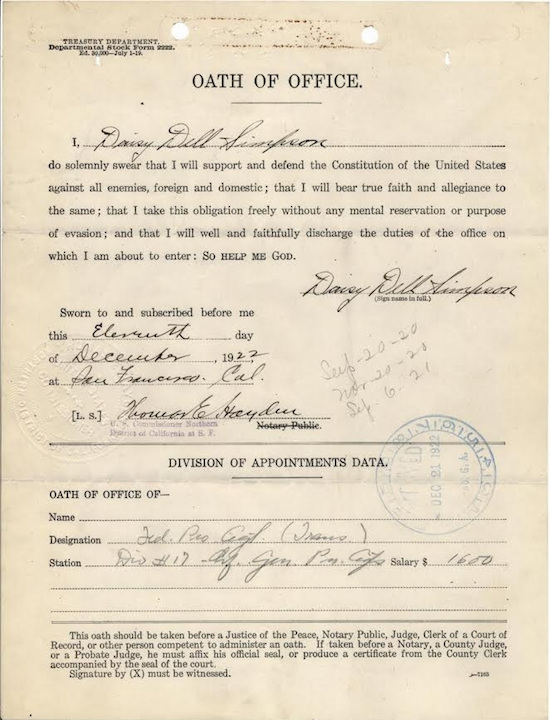 TREASURY DEPARTMENT,
Departmental Stock Form 2222.
Ed. 20,000—July 1-19.
OATH OF OFFICE.
I, Daisy Dell Simpson
do solemnly swear that I will support and defend the Constitution of the United States
against all enemies, foreign and domestic; that I will bear true faith and allegiance to
the same; that I take this obligation freely without any mental reservation or purpose
of evasion; and that I will well and faithfully discharge the duties of the office on
which I am about to enter: SO HELP ME GOD.
Daisy Dell Simpson
(Sign name in full.)
Sworn to and subscribed before me
this Eleventh day
of December, 1922
at San Francisco. Cal.
Sep-20-20
Nov 20-20
6-21
[L. S.] Thomas E Hayden
U. S. Commissioner Northern
District of California at S. F.
Notary Public.
DEC 21 1922
DIVISION OF APPOINTMENTS DATA.
OATH OF OFFICE OF—
Name
Designation Fed. Pro Agt. (Trans.)
Station Div #17 Gen Salary $ 1600
This oath should be taken before a Justice of the Peace, Notary Public, Judge, Clerk of a Court of
Record, or other person competent to administer an oath. If taken before a Notary, a County Judge,
or a Probate Judge, he must affix his official seal, or produce a certificate from the County Clerk
accompanied by the seal of the court.
Signature by (X) must be witnessed.